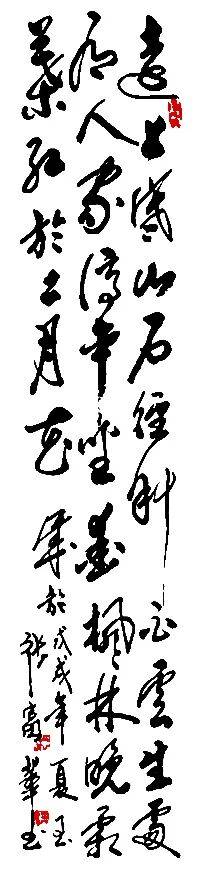 遠上寒山石徑斜白雲生處
有人家停車坐愛楓林晚霜
葉紅於二月花
於戊戌年夏
富華书